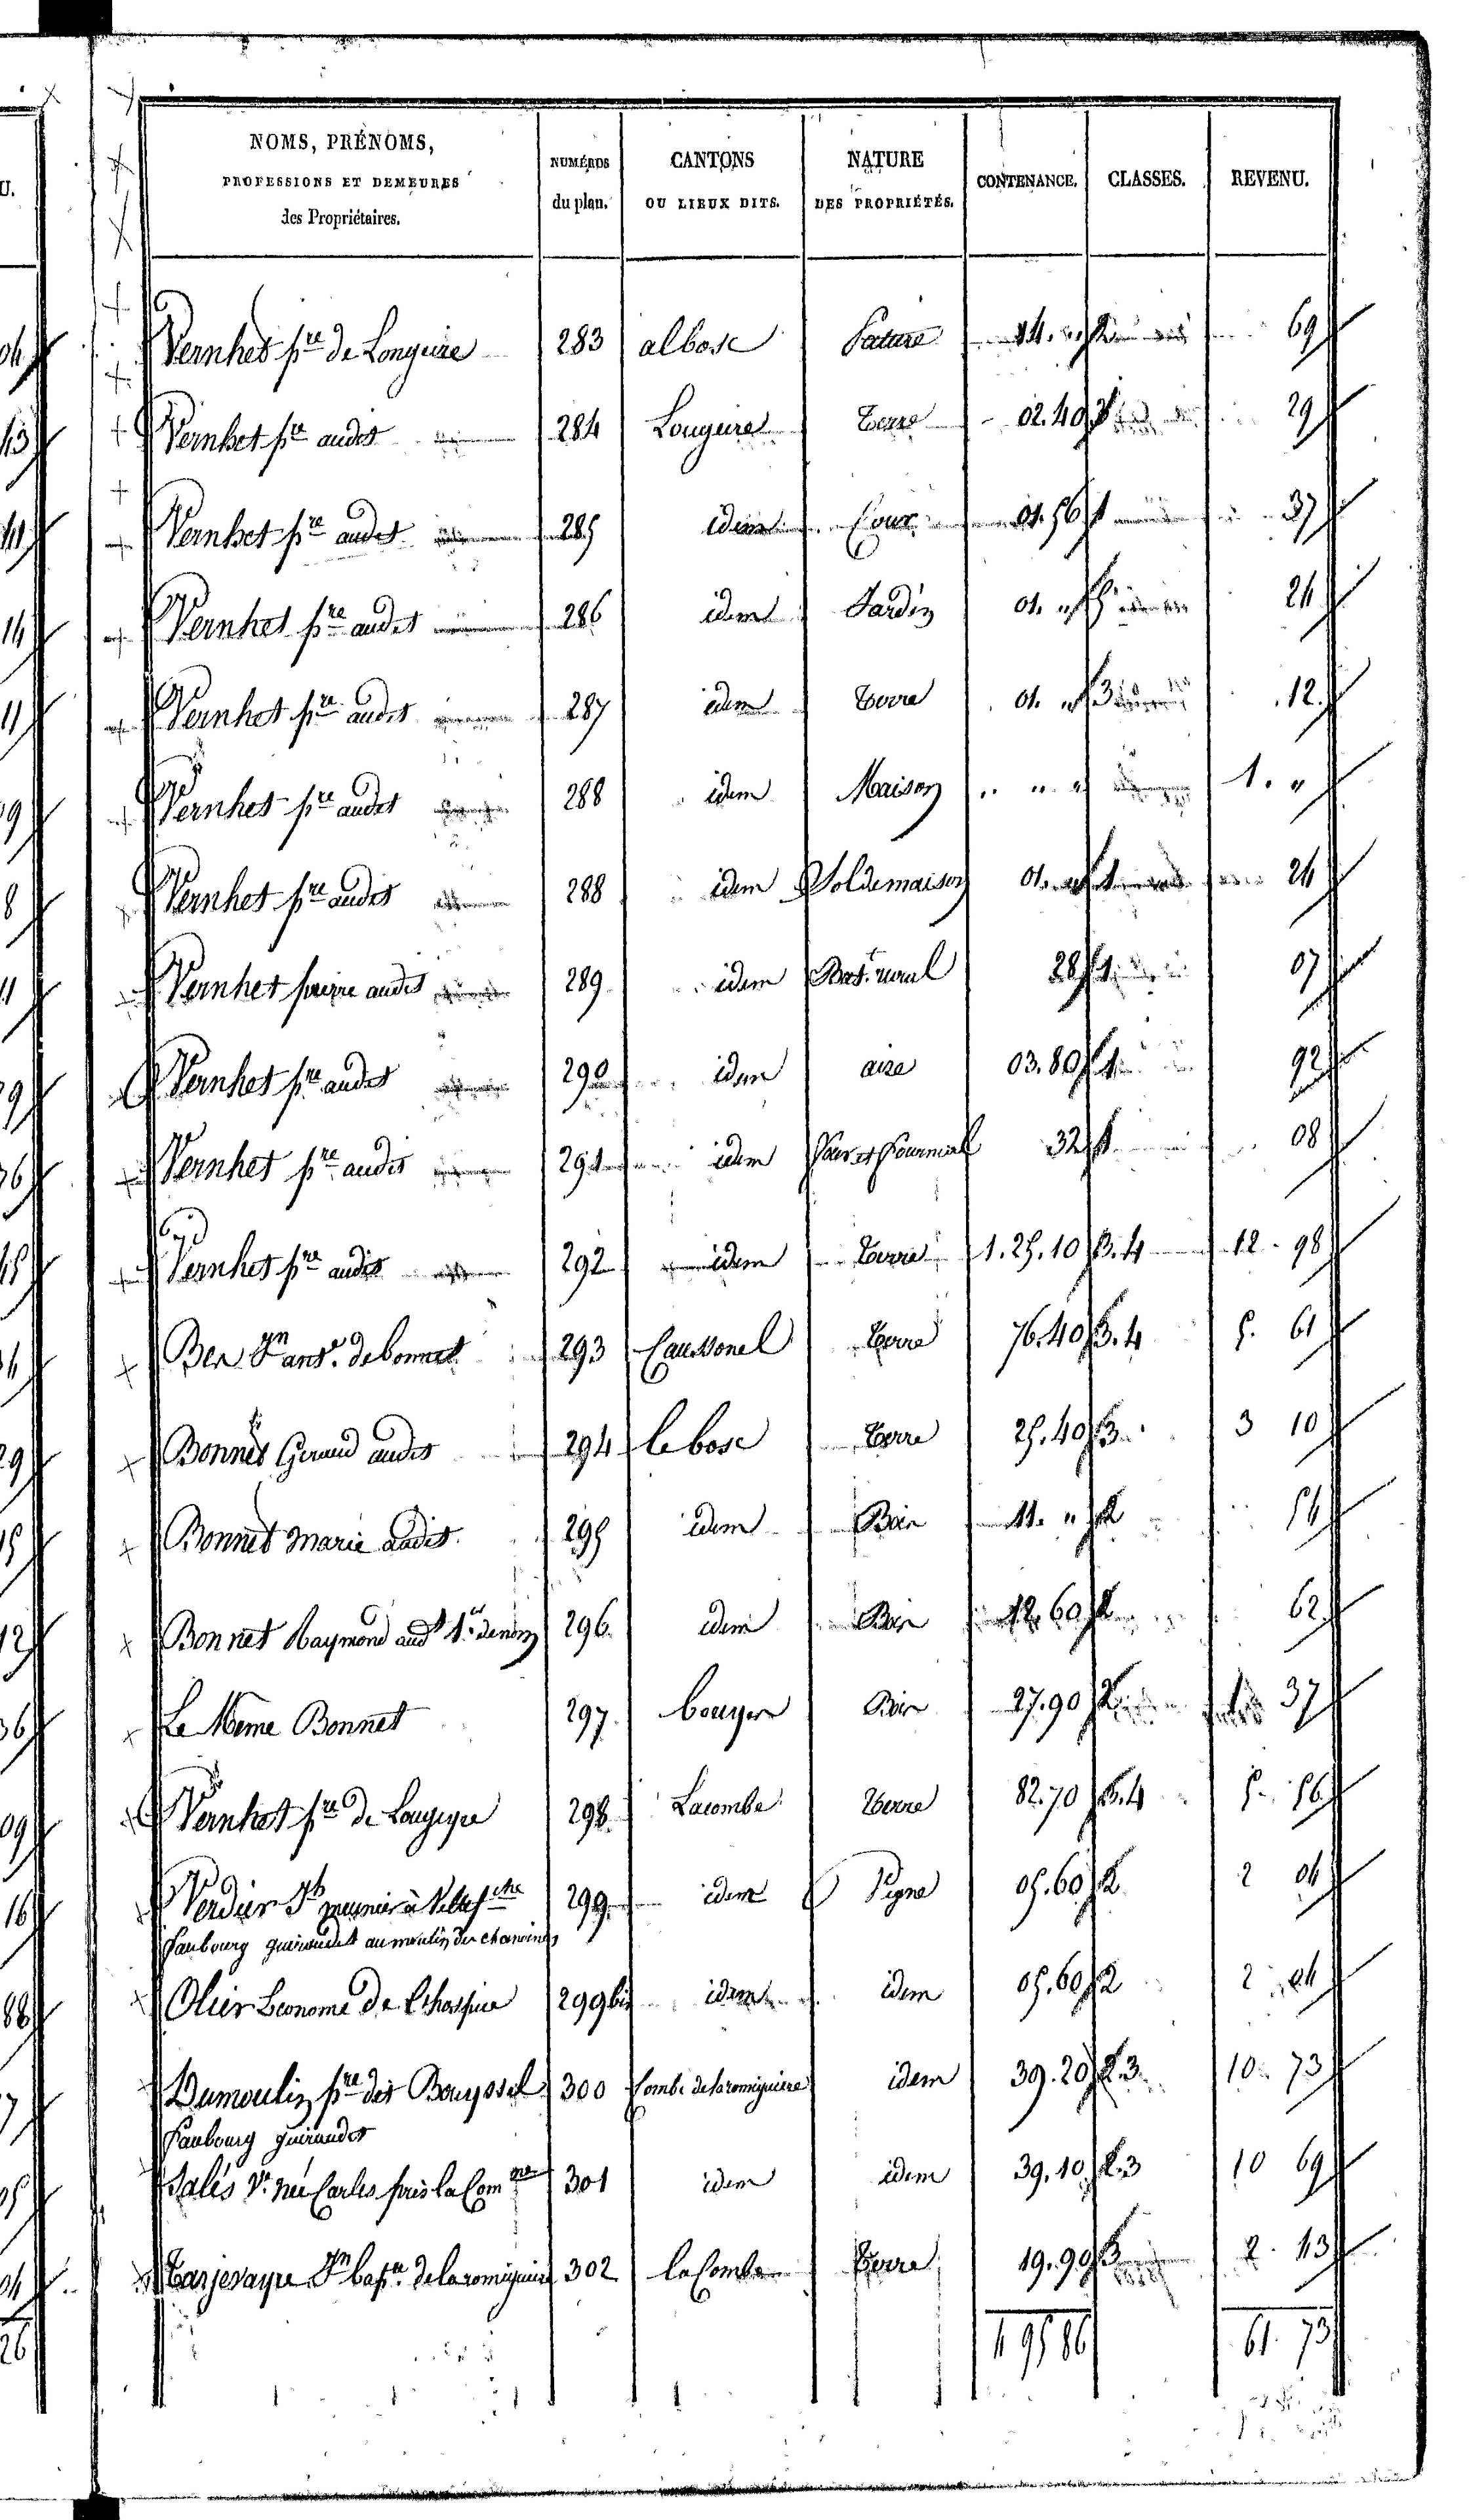 NOMS, PRÉNOMS, PROFESSIONS ET DEMEURES des Propriétaires. NUMÉROS du plan. CANTONS OU LIEUX DITS. NATURE DES PROPRIÉTÉS. CONTENANCE. CLASSES. REVENU.
Vernhet pre de Longuire 283 albosc Pature 14. " 69
Vernhet pre audit 284 Longuire Terre 02.40 3 29
Vernhet pre audit 285 idem Cour 01.56 1 37
Vernhet pre audit 286 idem Jardin 01. " 24
Vernhet pre audit 287 idem Terre 01. " 3 12
Vernhet pre audit 288 idem Maison " " " 1. "
Vernhet pre audit 288 idem Sol de maison 01. " 1 24
Vernhet pierre audit 289 idem Bat. rural 28 1 07
Vernhet pre audit 290 idem aire 03.80 1 92
Vernhet pre audit 291 idem Pat. et fournial 32 1 08
Vernhet pre audit 292 idem Terre 1.25.10 3.4 12.98
Ber Jn ant. de bonnet 293 Caussonel Terre 76.40 3.4 5.61
Bonnet Geraud audit 294 le bosc Terre 25.40 3 3 10
Bonnet Marie audit 295 idem Bois 11. " 2 54
Bonnet Raymond audt 1er du nom 296 idem Bois 12.60 2 62
Le Meme Bonnet 297 bouyssou Bois 27.90 2 37
Vernhet pre de Longuyre 298 Lacombe Terre 82.70 3.4 5.56
Verdier Jh meunier à Villefche 299 idem Vigne 05.60 2 2 04
Faubourg guiraudet au moulin des chanoines
Olier Econome de l'hospice 299 bis idem idem 05.60 2 2 04
Dumoulin pre dit Bouyssel 300 Combe de laromiguiere idem 39.20 2.3 10.73
Faubourg guiraudet
Salés Ve née Carles près la Com 301 idem idem 39.10 2.3 10 69
Tarjevayre Jn bapte de laromiguiere 302 la Combe Terre 19.90 3 2.43
4 95 86 61.73